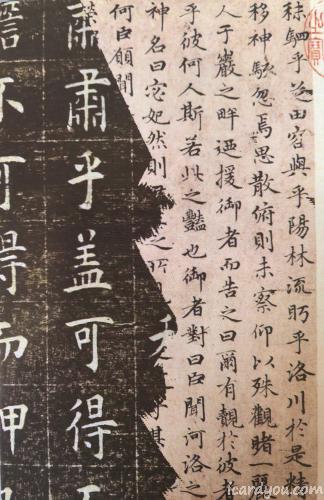 秣駟乎芝田容與乎陽林流眄乎洛川於是精
移神駭忽焉思散俯則未察仰以殊觀睹
人于巖之畔廼援御者而告之曰爾有覿於彼者
乎彼何人斯若此之豔也御者對曰臣聞河洛之
神名曰宓妃然則之所乎其
何臣願聞
肅肅乎盖可得
可得而狎
icardyou.com